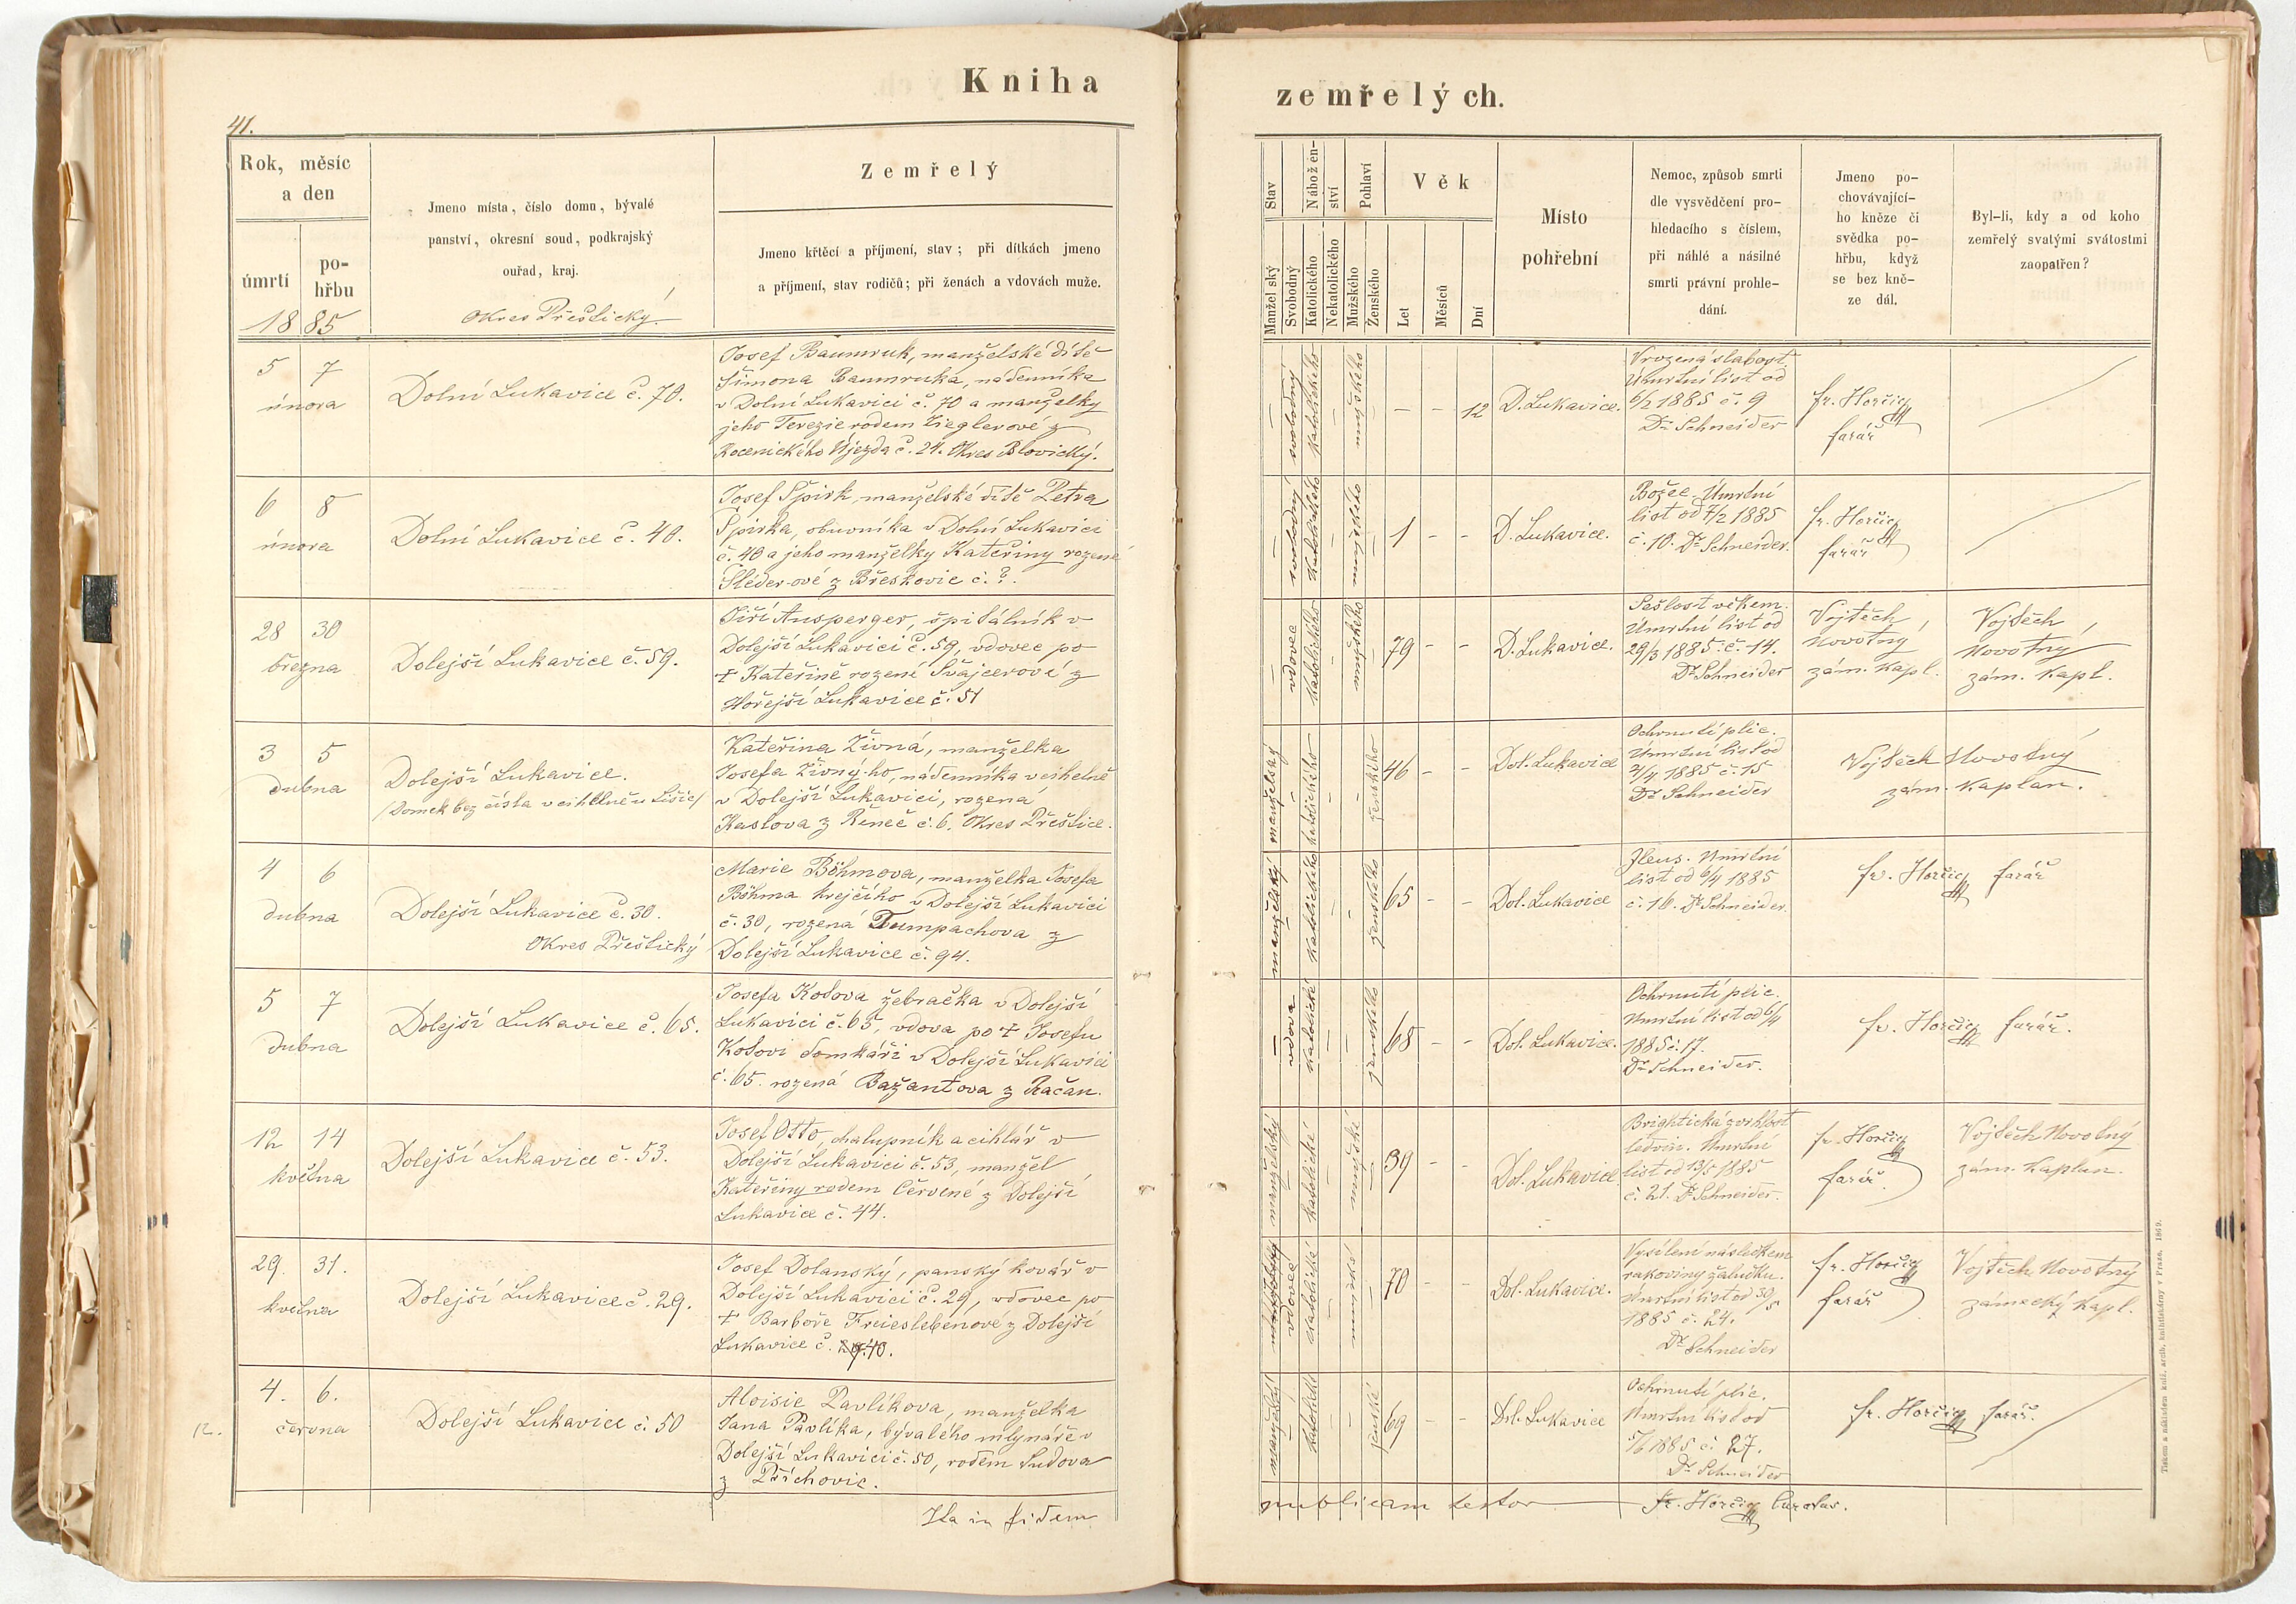 Kniha
zemřelých.
41.
Rok, měsíc
a den
úmrtí
po-
hřbu
1885
Jmeno místa, číslo domu, bývalé
panství, okresní soud, podkrajský
ouřad, kraj.
Okres Přeštický.
Zemřelý
Jmeno křtěcí a příjmení, stav; při dítkách jmeno
a příjmení, stav rodičů; při ženách a vdovách muže.
Stav
Manželský
Svobodný
Náboženství
Katolického
Nekatolického
Pohlaví
Mužského
Ženského
Věk
Let
Měsíců
Dní
Místo
pohřební
Nemoc, způsob smrti
dle vysvědčení pro-
hledacího s číslem,
při náhlé a násilné
smrti právní prohle-
dání.
Jmeno po-
chovávající-
ho kněze či
svědka po-
hřbu, když
se bez kně-
ze dál.
Byl-li, kdy a od koho
zemřelý svatými svátostmi
zaopatřen?
5 7
února
Dolní Lukavice č. 70.
Josef Baumruk, manželské dítě
Šimona Baumruka, nádenníka
v Dolní Lukavici č. 70 a manželky
jeho Terezie rodem Zieglerove z
Rocenického Újezda č. 24. Okres Blovický.
svobodný
katolického
mužského
- - 12
D. Lukavice.
Vrozená slabost
Úmrtní list od
6/2 1885 č. 9
Dr Schneider
fr. Horčic
farář
6 8
února
Dolní Lukavice č. 40.
Josef Špirk, manželské dítě Petra
Špirka, obuvníka v Dolní Lukavici
č. 40 a jeho manželky Kateřiny rozené
Šléder-ové z Břeskovic č. ?.
svobodný
katolického
mužského
1 - -
D. Lukavice.
Božec. Úmrtní
list od 7/2 1885
č. 10. Dr Schneider.
fr. Horčic
farář
28 30
března
Dolejší Lukavice č. 59.
Jiří Ausperger, špitálník v
Dolejší Lukavici č. 59, vdovec po
+ Kateřině rozené Švajcerové z
Hořejší Lukavice č. 51
vdovec
katolického
mužského
79 - -
D. Lukavice.
Sešlost věkem.
Úmrtní list od
29/3 1885. č. 14.
Dr Schneider
Vojtěch
Novotný
zám. kapl.
Vojtěch
Novotný
zám. kapl.
3 5
dubna
Dolejší Lukavice.
/Domek bez čísla v cihelně u Lišic/
Kateřina Živná, manželka
Josefa Živný-ho, nádenníka v cihelně
v Dolejší Lukavici, rozená
Kaslova z Řeneč č. 6. Okres Přeštice.
manželský
katolického
ženského
46 - -
Dol. Lukavice
Ochrnutí plic.
Úmrtní list od
4/4 1885 č. 15
Dr Schneider
Vojtěch Novotný
zám. kaplan.
4 6
dubna
Dolejší Lukavice č. 30.
Okres Přeštický
Marie Böhmova, manželka Josefa
Böhma krejčího v Dolejší Lukavici
č. 30, rozená Tumpachova z
Dolejší Lukavice č. 94.
manželský
katolického
ženského
65 - -
Dol. Lukavice
Ileus. Úmrtní
list od 6/4 1885
č. 16. Dr Schneider.
fr. Horčic farář
5 7
dubna
Dolejší Lukavice č. 65.
Josefa Kotova žebračka v Dolejší
Lukavici č. 65, vdova po + Josefu
Kotovi domkáři v Dolejší Lukavici
č. 65. rozená Bažantova z Račan.
vdova
katolické
ženského
68 - -
Dol. Lukavice.
Ochrnutí plic.
Úmrtní list od 6/4
1885 č. 17.
Dr Schneider.
fr. Horčic farář.
12 14
května
Dolejší Lukavice č. 53.
Josef Otto, chalupník a cihlář v
Dolejší Lukavici č. 53, manžel
Kateřiny rodem Červené z Dolejší
Lukavice č. 44.
manželský
katolické
mužské
39 - -
Dol. Lukavice
Brightická zvrhlost
ledvin. Úmrtní
list od 13/5 1885
č. 21. Dr Schneider.
fr. Horčic
farář.
Vojtěch Novotný
zám. kaplan.
29. 31.
května
Dolejší Lukavice č. 29.
Josef Dolanský, panský kovář v
Dolejší Lukavici č. 29, vdovec po
+ Barboře Freieslebenové z Dolejší
Lukavice č. 40.
vdovec
katolické
mužské
70 - -
Dol. Lukavice.
Vysílení následkem
rakoviny žaludku.
Úmrtní list od 30/5
1885 č. 24.
Dr Schneider
fr. Horčic
farář
Vojtěch Novotný
zámecký kapl.
12.
4. 6.
června
Dolejší Lukavice č. 50
Aloisie Pavlíkova, manželka
Jana Pavlíka, bývalého mlynáře v
Dolejší Lukavici č. 50, rodem Sudova
z Příchovic.
manželský
katolické
ženské
69 - -
Dol. Lukavice
Ochrnutí plic.
Úmrtní list od
5/6 1885 č. 27.
Dr Schneider
fr. Horčic farář.
Ita in fidem
publicam testor fr. Horčic Curatus.
Tiskem a nákladem kníž. arcib. knihtiskárny v Praze. 1869.